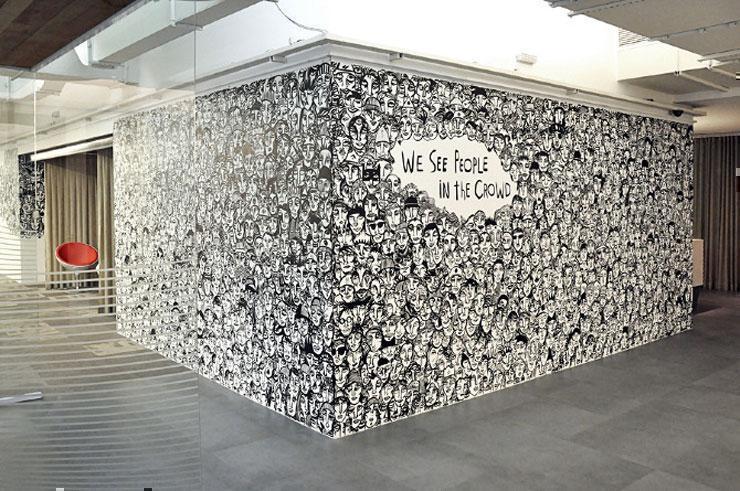 We See People
in the Crowd